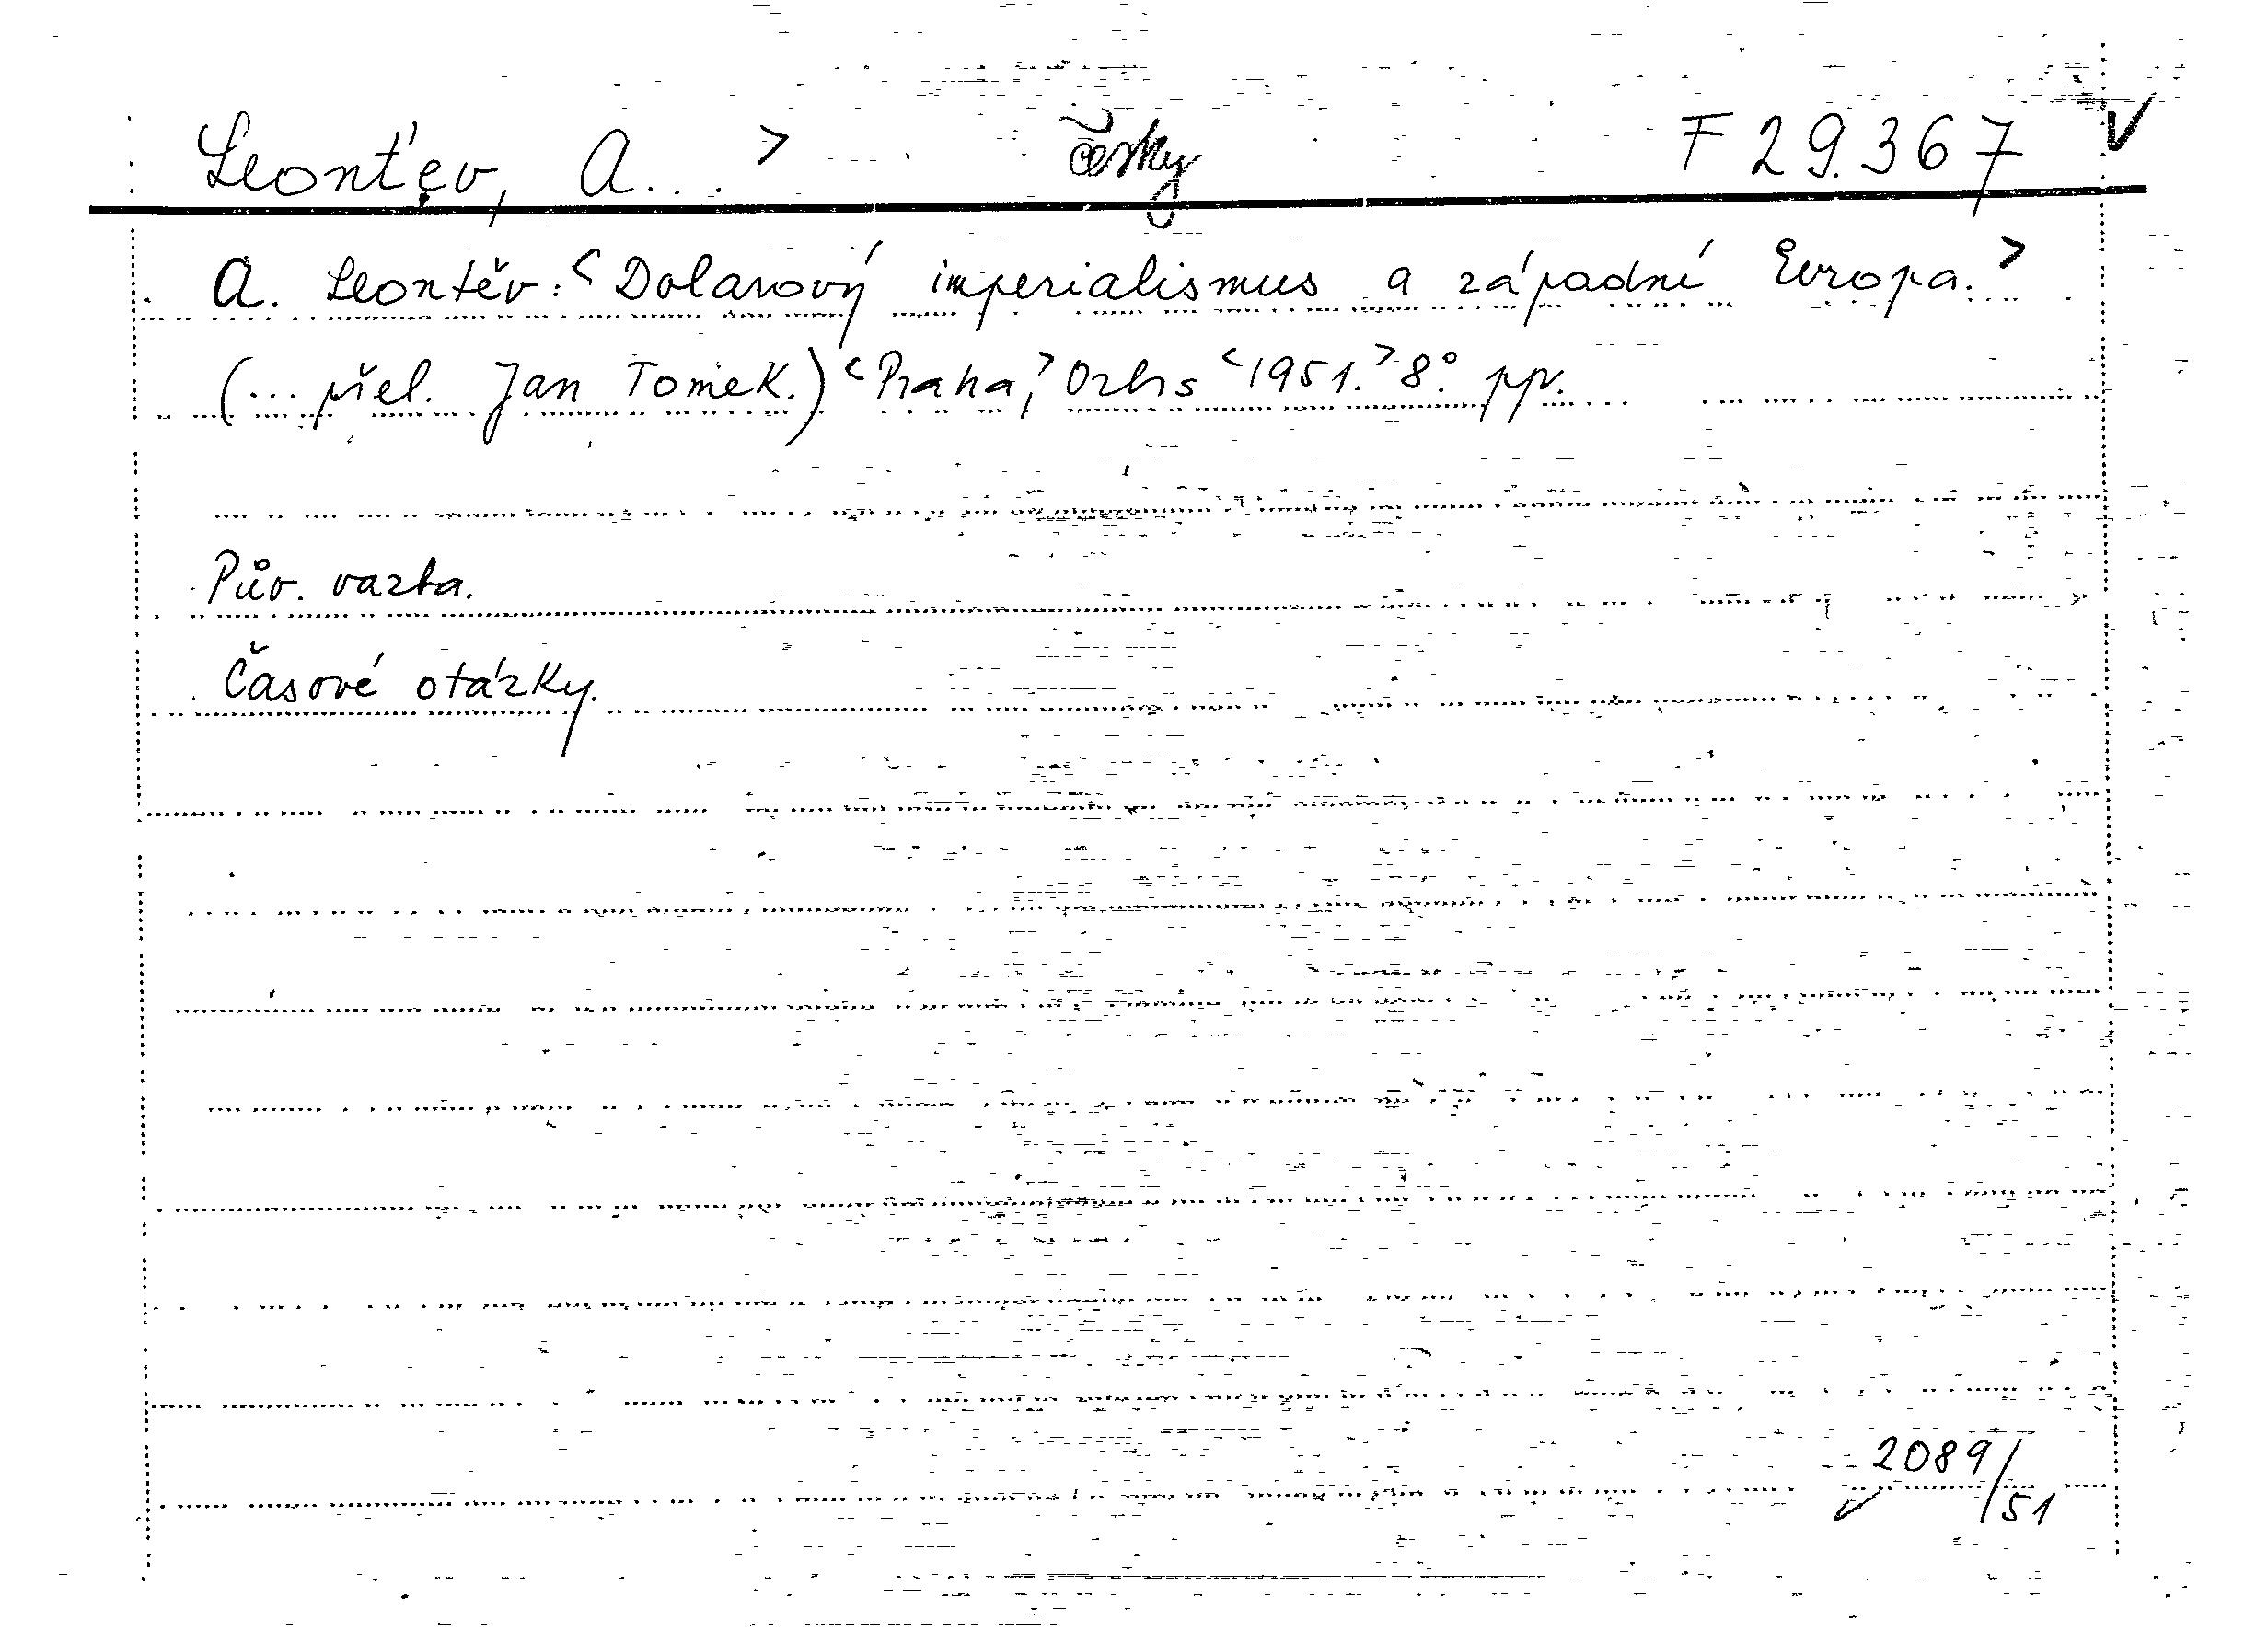 Leonťev, A... > česky F 29.367 V
A. Leontěv: < Dolarový imperialismus a západní Evropa. >
(... přel. Jan Tomek.) < Praha, > Orbis < 1951. > 8°. pp.
Pův. vazba.
Časové otázky.
2089/51